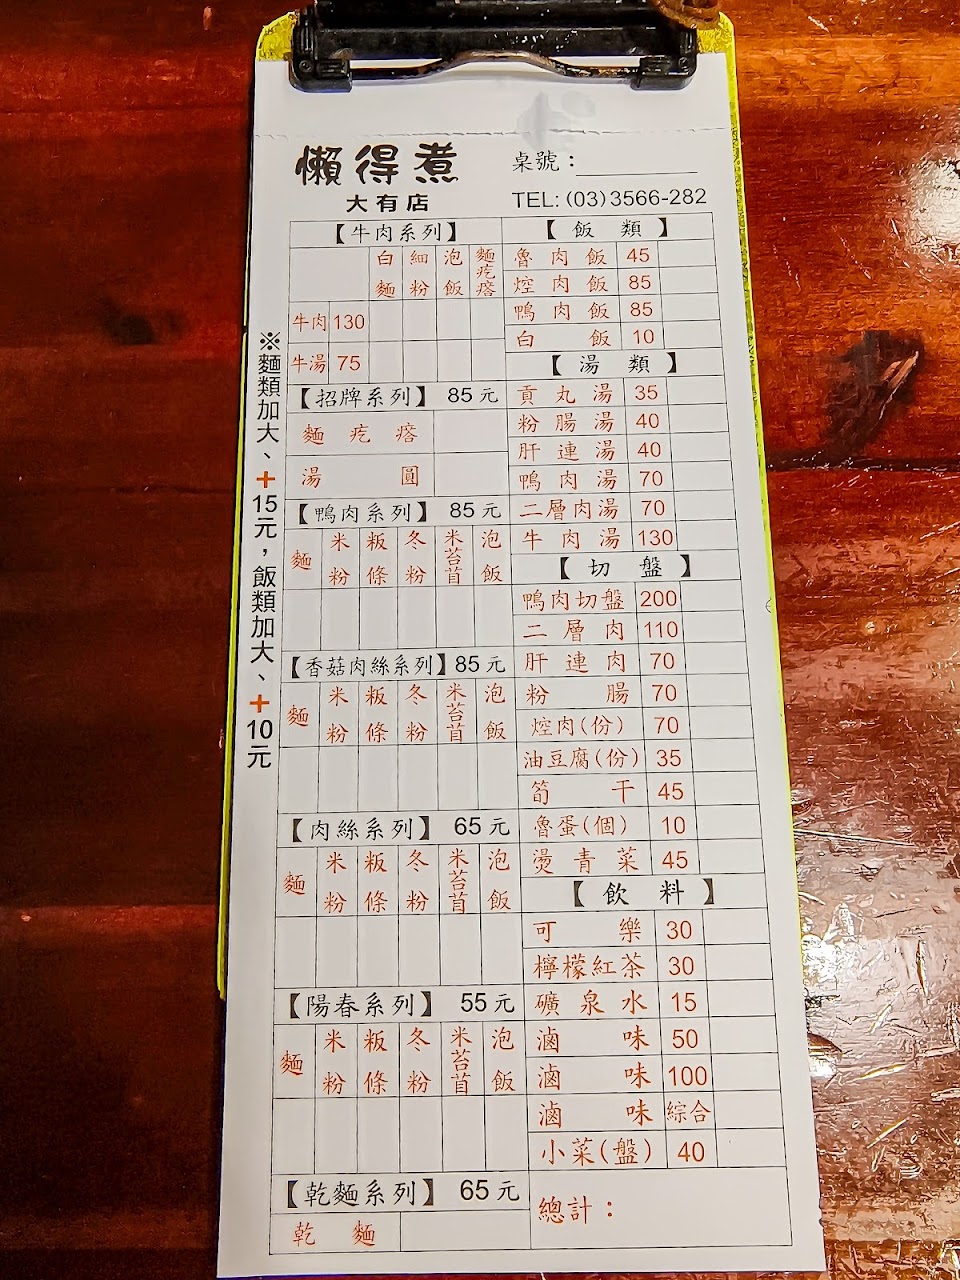 懶得煮
大有店
桌號：
TEL: (03)3566-282
※麵類加大、+15元，飯類加大、+10元
【牛肉系列】
白麵 細粉 泡飯 麵疙瘩
牛肉 130
牛湯 75
【招牌系列】 85元
麵疙瘩
湯圓
【鴨肉系列】 85元
麵 米粉 粄條 冬粉 米苔苜 泡飯
【香菇肉絲系列】85元
麵 米粉 粄條 冬粉 米苔苜 泡飯
【肉絲系列】 65元
麵 米粉 粄條 冬粉 米苔苜 泡飯
【陽春系列】 55元
麵 米粉 粄條 冬粉 米苔苜 泡飯
【乾麵系列】 65元
乾麵
【飯類】
魯肉飯 45
焢肉飯 85
鴨肉飯 85
白飯 10
【湯類】
貢丸湯 35
粉腸湯 40
肝連湯 40
鴨肉湯 70
二層肉湯 70
牛肉湯 130
【切盤】
鴨肉切盤 200
二層肉 110
肝連肉 70
粉腸 70
焢肉(份) 70
油豆腐(份) 35
筍干 45
魯蛋(個) 10
燙青菜 45
【飲料】
可樂 30
檸檬紅茶 30
礦泉水 15
滷味 50
滷味 100
滷味 綜合
小菜(盤) 40
總計：